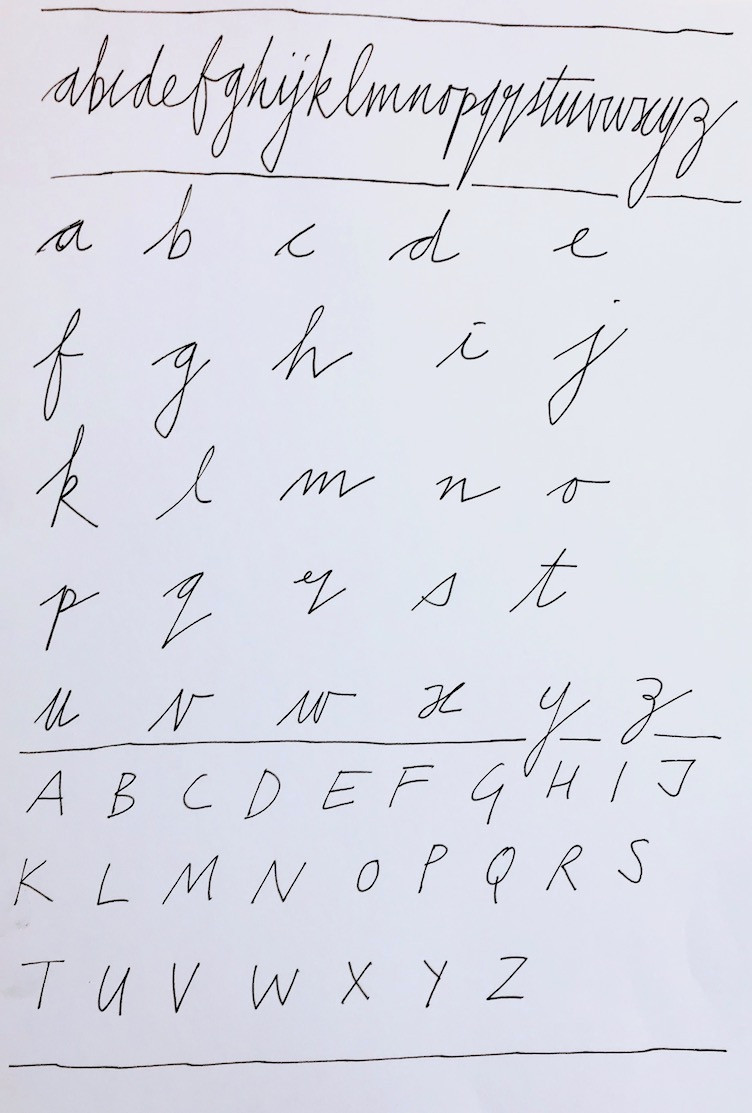 abcdefghijklmnopqrstuvwxyz
a b c d e
f g h i j
k l m n o
p q r s t
u v w x y z
A B C D E F G H I J
K L M N O P Q R S
T U V W X Y Z